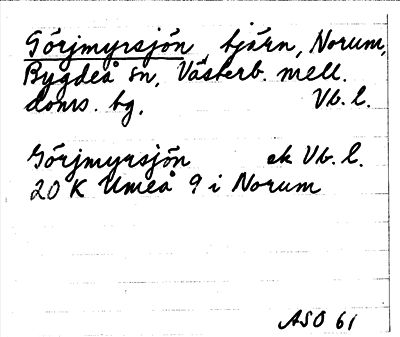 Görjmyrsjön, tjärn, Norum,
Bygdeå sn, Västerb. mell.
doms. bg. Vb. l.
Görjmyrsjön ek Vb. l.
20 K Umeå 9 i Norum
ASO 61